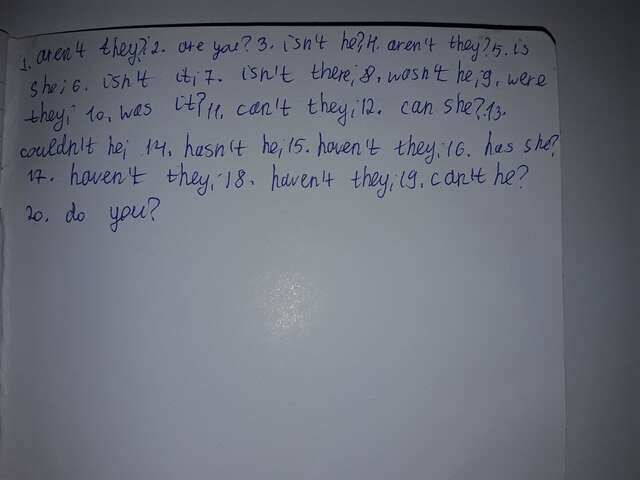 1. aren't they?; 2. are you? 3. isn't he?; 4. aren't they?; 5. is
she; 6. isn't it; 7. isn't there; 8. wasn't he; 9. were
they; 10. was it? 11. can't they; 12. can she? 13.
couldn't he; 14. hasn't he; 15. haven't they; 16. has she?
17. haven't they; 18. haven't they; 19. can't he?
20. do you?